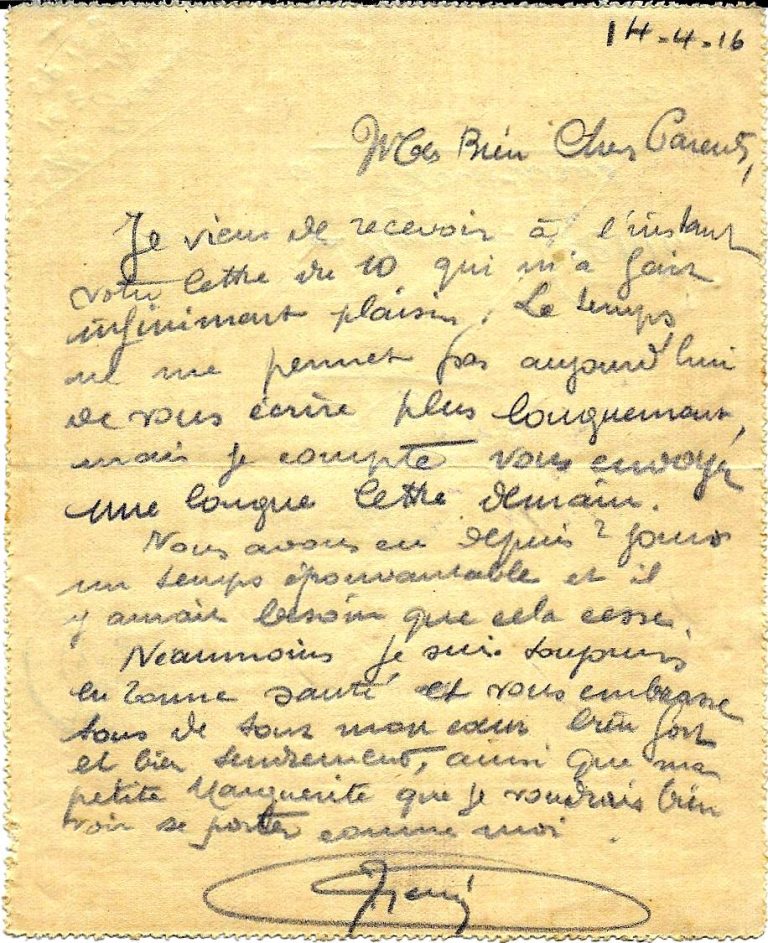 14-4-16
Mes Bien Chers Parents,
Je viens de recevoir à l'instant
votre lettre du 10 qui m'a fait
infiniment plaisir. Le temps
ne me permet pas aujourd'hui
de vous écrire plus longuement,
mais je compte vous envoyer
une longue lettre demain.
Nous avons eu depuis 2 jours
un temps épouvantable et il
y aurait besoin que cela cesse.
Neanmoins je suis toujours
en bonne santé et vous embrasse
tous de tout mon cœur bien fort
et bien tendrement, ainsi que ma
petite Marguerite que je voudrais bien
voir se porter comme moi.